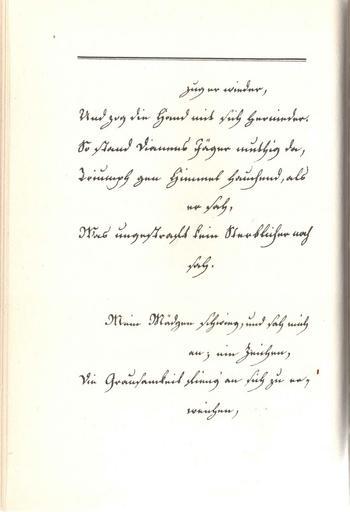 zug er wieder,
Und zog die Hand mit sich hernieder.
So stand Dianens Jäger muthig da,
Triumph gen Himmel hauchend, als
er sah,
Was ungestraft kein Sterblicher noch
sah.
Mein Mädgen schwieg, und sah mich
an; ein Zeichen,
Die Grausamkeit fieng an sich zu er-,
weichen,